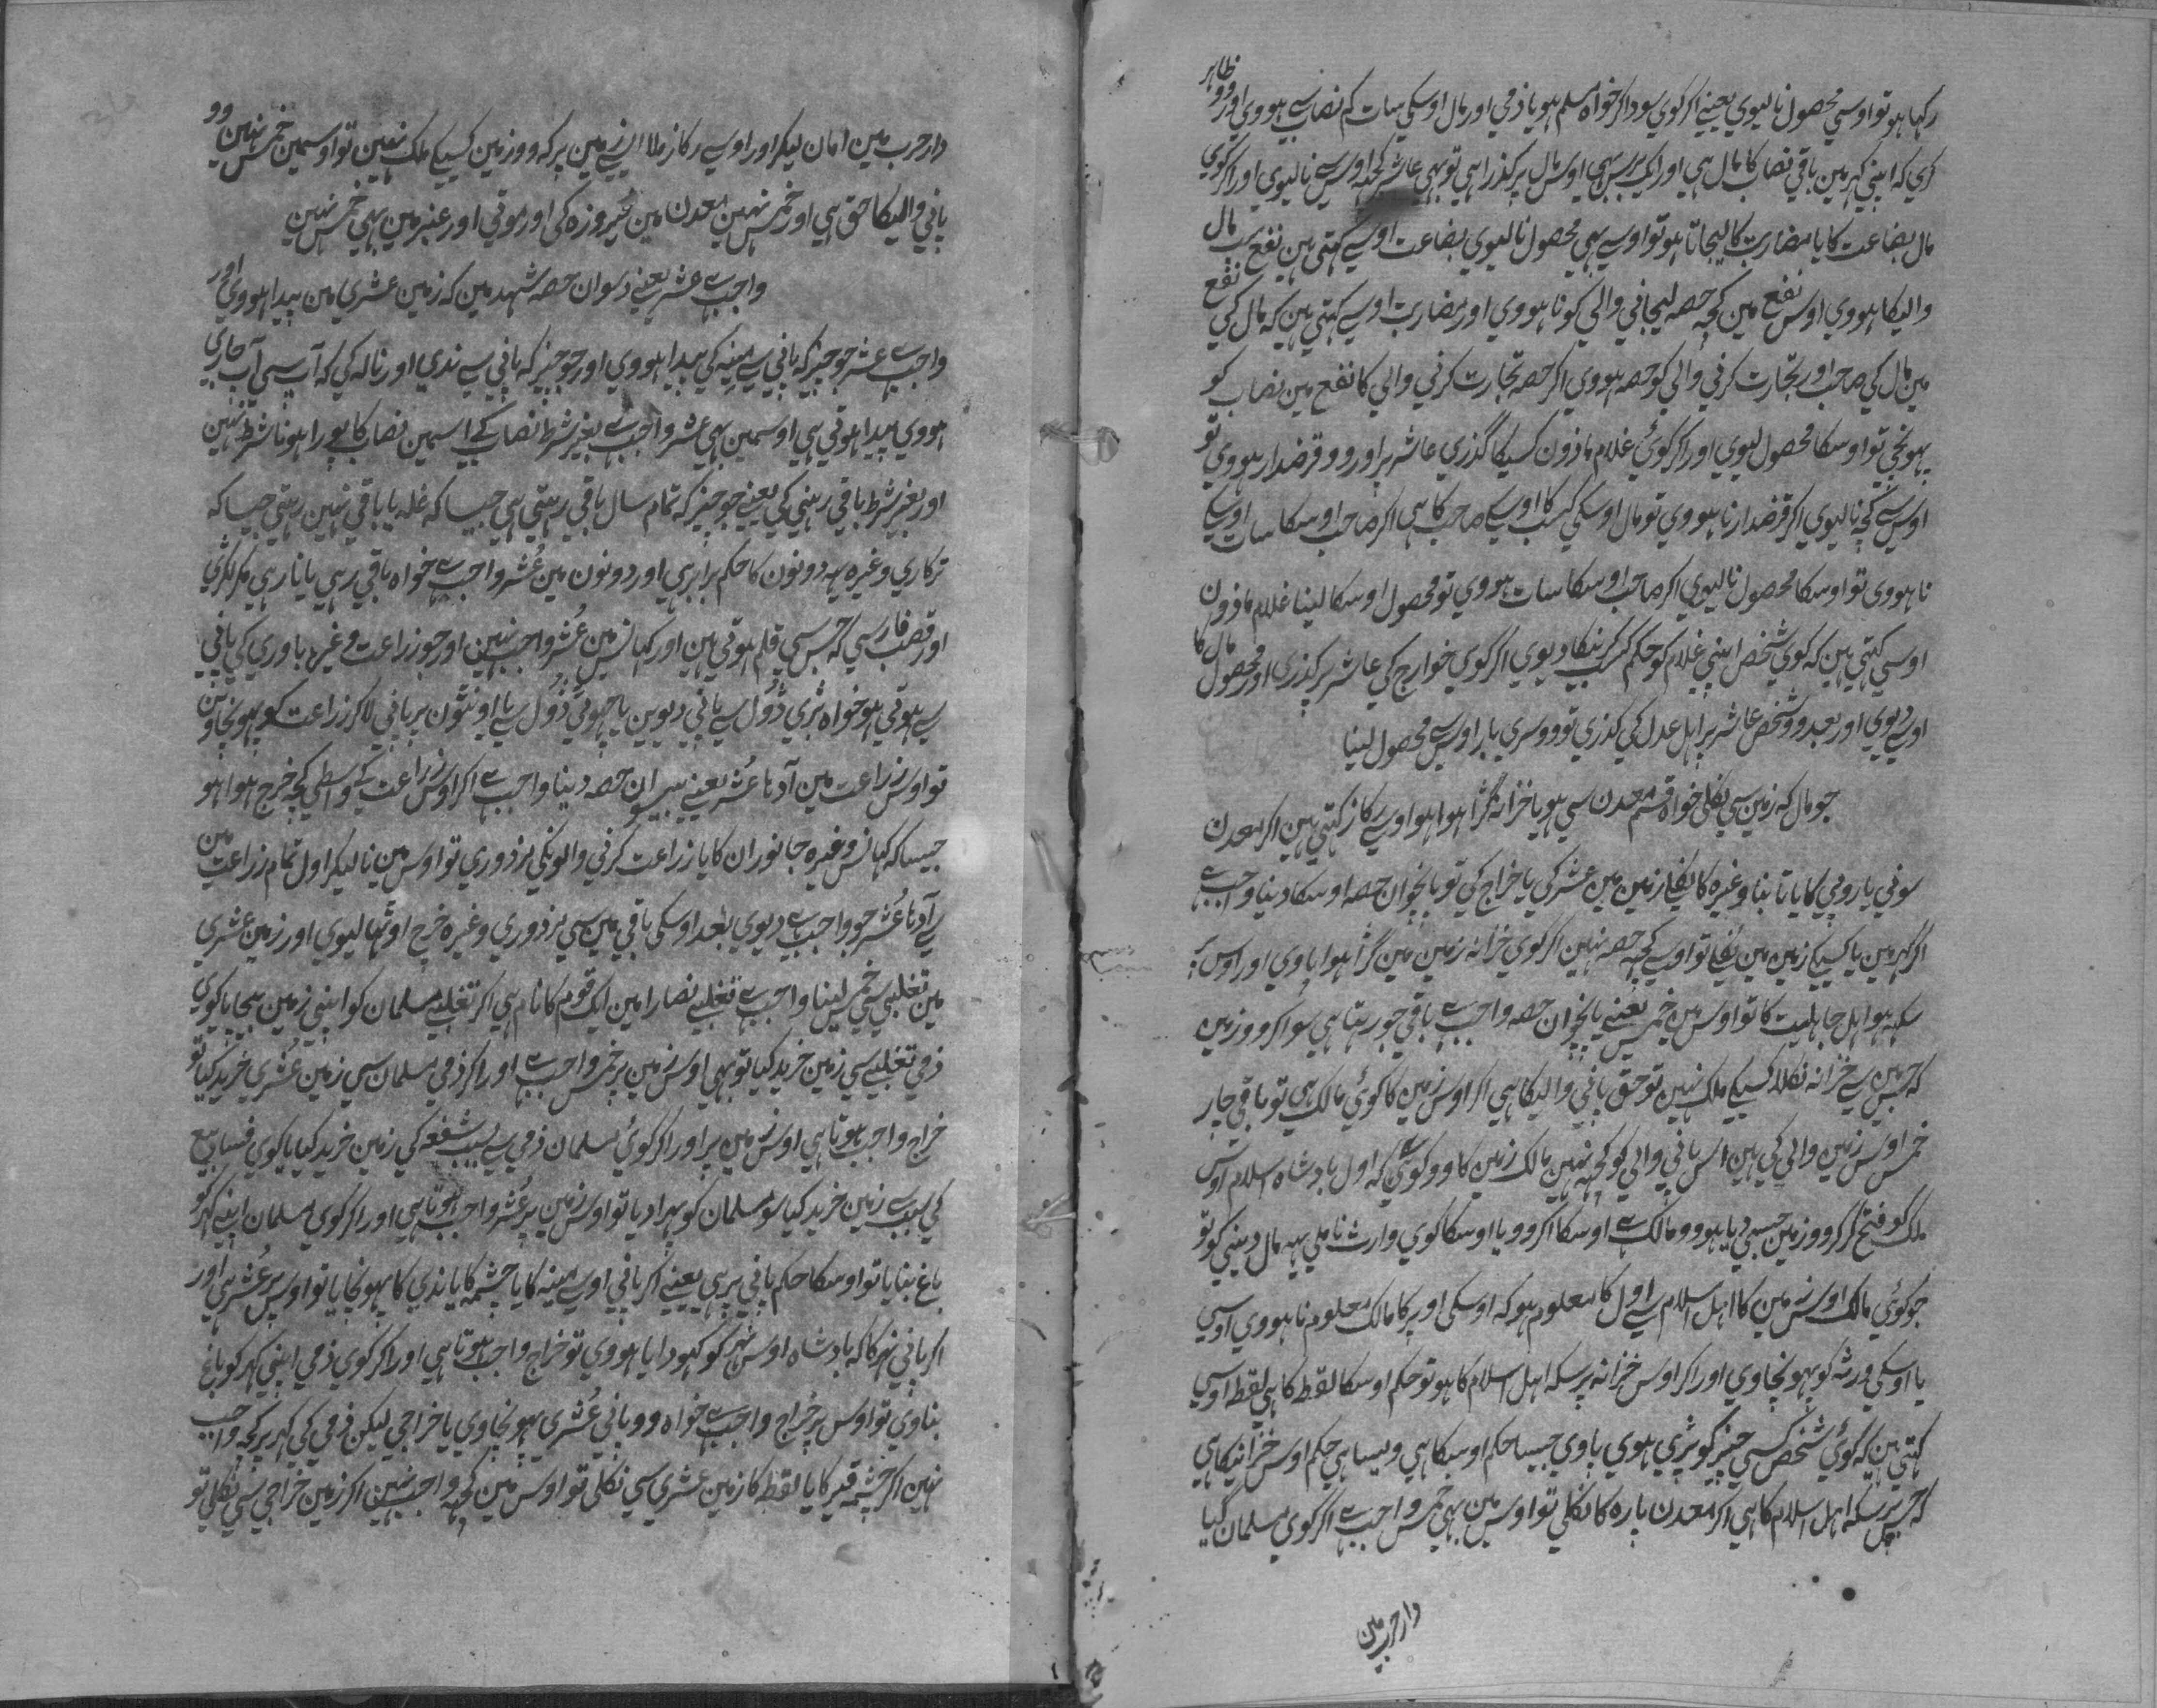 رکہا ہو تو اوسی محصول نالیوی یعنے اکر کوی سوداکر خواہ مسلم ہو یا ذمی اور مال اوسکی سات کم نصاب سے ہووی اور وو ظاہر
کری کہ اپنی کہر مین باقی نصاب کا مال ہی اور ایک برس بہی اوس مال پر کذرا ہی تو بہی عاشر کچہ اوس سے نالیوی اور اکر کوی
مال بضاعت کا یا مضاربت کا لیجاتا ہو تو اوسے بہی محصول نالیوی بضاعت اوسے کہتی ہین نفع سب مال
والیکا ہووی اوس نفع مین کچہ حصہ لیجانی والی کو نا ہووی اور مضاربت اوسے کہتی ہین کہ مال کی نفع
مین مال کی صاحب اور تجارت کرنی والی کو حصہ ہووی اکر حصہ تجارت کرنی والی کا نفع مین نصاب کو
پہونچی تو اوسکا محصول لیوی اور اکر کوئی غلام ماذون کسیکا گذری عاشر پر اور وو قرضدار ہووی تو
اوس سے کچہ نالیوی اکر قرضدار نا ہووی تو مال اوسکی کسب کا اوسکے صاحب کا ہی اکر صاحب اوسکا سات اوسکے
نا ہووی تو اوسکا محصول نالیوی اکر صاحب اوسکا سات ہووی تو محصول اوسکا لینا غلام ماذون
اوسی کہتی ہین کہ کوی شخص اپنی غلام کو حکم کسب کرنیکا دیوی اکر کوی خوارج کی عاشر پر کذری اور محصول مال کا
اوسے دیوی اور بعد وو شخص عاشر پر اہل عدل کی کذری تو دوسری بار اوس سے محصول لینا
جو مال کہ زمین سی نکلی خواہ قسم معدن سی ہو یا خزانہ گڑا ہوا ہو اوسے رکاز کہتی ہین اکر معدن
سونی یا روپی کا یا تانبا وغیرہ کا نکلے زمین مین عشر کی یا خراج کی تو پانچوان حصہ اوسکا دینا واجب ہے
اکر کہر مین یا کسیکے زمین مین نکلے تو اوسے کچہ حصہ نہین اکر کوی خزانہ زمین مین گڑا ہوا پاوی اور اوس پر
سکہ ہو اہل جاہلیت کا تو اوس مین خمس یعنے پانچوان حصہ واجب ہے باقی جو رہتا ہی سو اکر وو زمین
کہ جس مین سے خزانہ نکلا کسیکے ملک نہین تو حق پانی والیکا ہی اکر اوس زمین کا کوئی مالک ہی تو باقی چار
خمس اوس زمین والی کی ہین اس پانی والی کو کچہ نہین مالک زمین کا وو کوئی کہ اول بادشاہ اسلام اوس
ملک کو فتح کر کر وو زمین جسے دیا ہو وو مالک ہے اوسکا اکر وو یا اوسکا کوی وارث ناملی یہہ مال دینی کو تو
جو کوئی مالک اوس زمین کا اہل اسلام سے اول کا معلوم ہو کہ اوسکی اوپر کا مالک معلوم نا ہووی اوسی
یا اوسکی ورثہ کو پہونچاوی اور اکر اوس خزانہ پر سکہ اہل اسلام کا ہو تو حکم اوسکا لقطہ کا ہی لقطہ اوسی
کہتی ہین کہ کوئی شخص کسی چیز کو پڑی ہوی پاوی جیسا حکم اوسکا ہی ویسا ہی حکم اوس خزانیکا ہی
کہ جس پر سکہ اہل اسلام کا ہی اکر معدن پارہ کا نکلی تو اوس مین بہی خمس واجب ہے اکر کوی مسلمان کیا
دار حرب مین
دار حرب مین امان لیکر اور اوسے رکاز ملا ایسے زمین پر کہ وو زمین کسیکے ملک نہین تو اوسمین خمس نہین وو
پانی والیکا حق ہی اور خمس نہین معدن مین فیروزہ کی اور موتی اور عنبر مین بہی خمس نہین
واجب ہے عشر یعنے دسوان حصہ شہد مین کہ زمین عشری مین پیدا ہووی اور
واجب ہے عشر جو چیز کہ پانی سے مینہ کی پیدا ہووی اور جو چیز کہ پانی سے ندی اور نالہ کی کہ آپ سی آپ جاری
ہووی پیدا ہوتی ہی اوسمین بہی عشر واجب ہے بغیر شرط نصاب کے اسمین نصاب کا پورا ہونا شرط نہین
اور بغیر شرط باقی رہنی کی یعنے جو چیز کہ تمام سال باقی رہتی ہی جیسا کہ غلہ یا باقی نہین رہتی جیسا کہ
ترکاری وغیرہ یہہ دونون کا حکم برابر ہی اور دونون مین عُشر واجب ہے خواہ باقی رہی یا نا رہی مکر لکڑی
اور قصب فارسی کہ جس سی قلم ہوتی ہین اور کہانس مین عُشر واجب نہین اور جو زراعت وغیرہا باوری کی پانی
سے ہوتی ہو خواہ بڑی ڈول سے پانی دیوین یا چہوٹی ڈول سے یا اونٹون پر پانی لاکر زراعت کو پہونچاوین
تو اوس زراعت مین آدہا عُشر یعنے بیسوان حصہ دینا واجب ہے اکر اوس زراعت کے واسطی کچہ خرج ہوا ہو
جیسا کہ کہانس وغیرہ جانوران کا یا زراعت کرنی والونکی مزدوری تو اوس مین نالیکر اول تمام زراعت مین
سے آدہا عُشر جو واجب ہے دیوی بعد اوسکی باقی مین سی مزدوری وغیرہ خرج اوٹہا لیوی اور زمین عشری
مین تغلبی سی خمس لینا واجب ہے تغلبے نصارا مین ایک قوم کا نام ہی اکر تغلبے مسلمان کو اپنی زمین بیچا یا کوی
ذمی تغلبے سی زمین خرید کیا تو بہی اوس زمین پر خمس واجب ہے اور اکر ذمی مسلمان سی زمین عُشری خرید کیا تو
خراج واجب ہوتا ہی اوس زمین پر اور اکر کوئی مسلمان ذمی سے بسبب شفعہ کی زمین خرید کیا یا کوی فساد بیع
کی سبب سے زمین خرید کیا سو مسلمان کو پہرا دیا تو اوس زمین پر عُشر واجب ہوتا ہی اور اکر کوی مسلمان اپنے کہر کو
باغ بنایا تو اوسکا حکم پانی پر ہی یعنے اکر پانی اوسے مینہ کا یا چشمہ کا یا ندی کا پہونچایا تو اوس پر عُشر ہی اور
اکر پانی نہر کا کہ بادشاہ اوس نہر کو کہودایا ہووی تو خراج واجب ہوتا ہی اور اکر کوی ذمی اپنی کہر کو باغ
بناوی تو اوس پر خراج واجب ہے خواہ وو پانی عُشری پہونچاوی یا خراجی لیکن ذمی کی کہر پر کچہ واجب
نہین اکر چشمہ قیر کا یا لفظ کا زمین عشری سی نکلی تو اوس مین کچہ واجب نہین اکر زمین خراجی سی نکلی تو